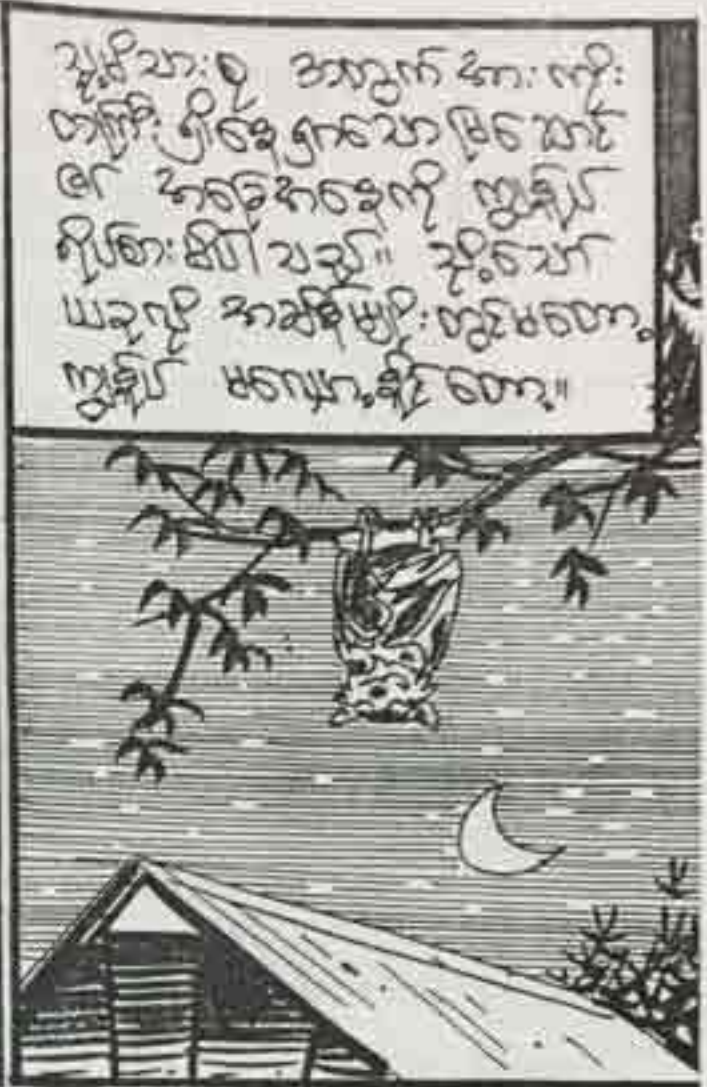 သူ့မိသားစု အတွက် အားကိုး
တကြီး ရှိနေရှာသော မြအောင်
၏ အခြေအနေကို ကျွန်ုပ်
ကိုယ်ချင်းစာမိပါသည်။ သို့သော်
ယခုလို အချိန်မျိုးတွင်မတော့
ကျွန်ုပ် မလျှော့နိုင်တော့။